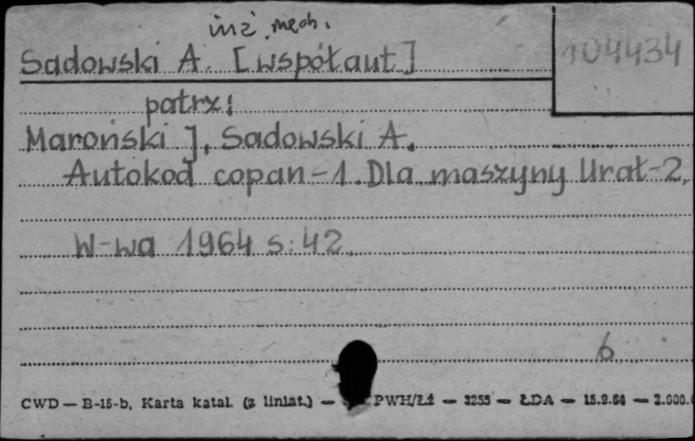 inż. mech.
Sadowski A. [współaut]
104434
patrz:
Maroński J, Sadowski A.
Autokod copan-1. Dla maszyny Urał-2,
W-wa 1964 s: 42.
6
CWD — B-15-b, Karta katal. (z liniat.) — PWH/Łź — 3255 — ŁDA — 15.9.64 — 2.000.